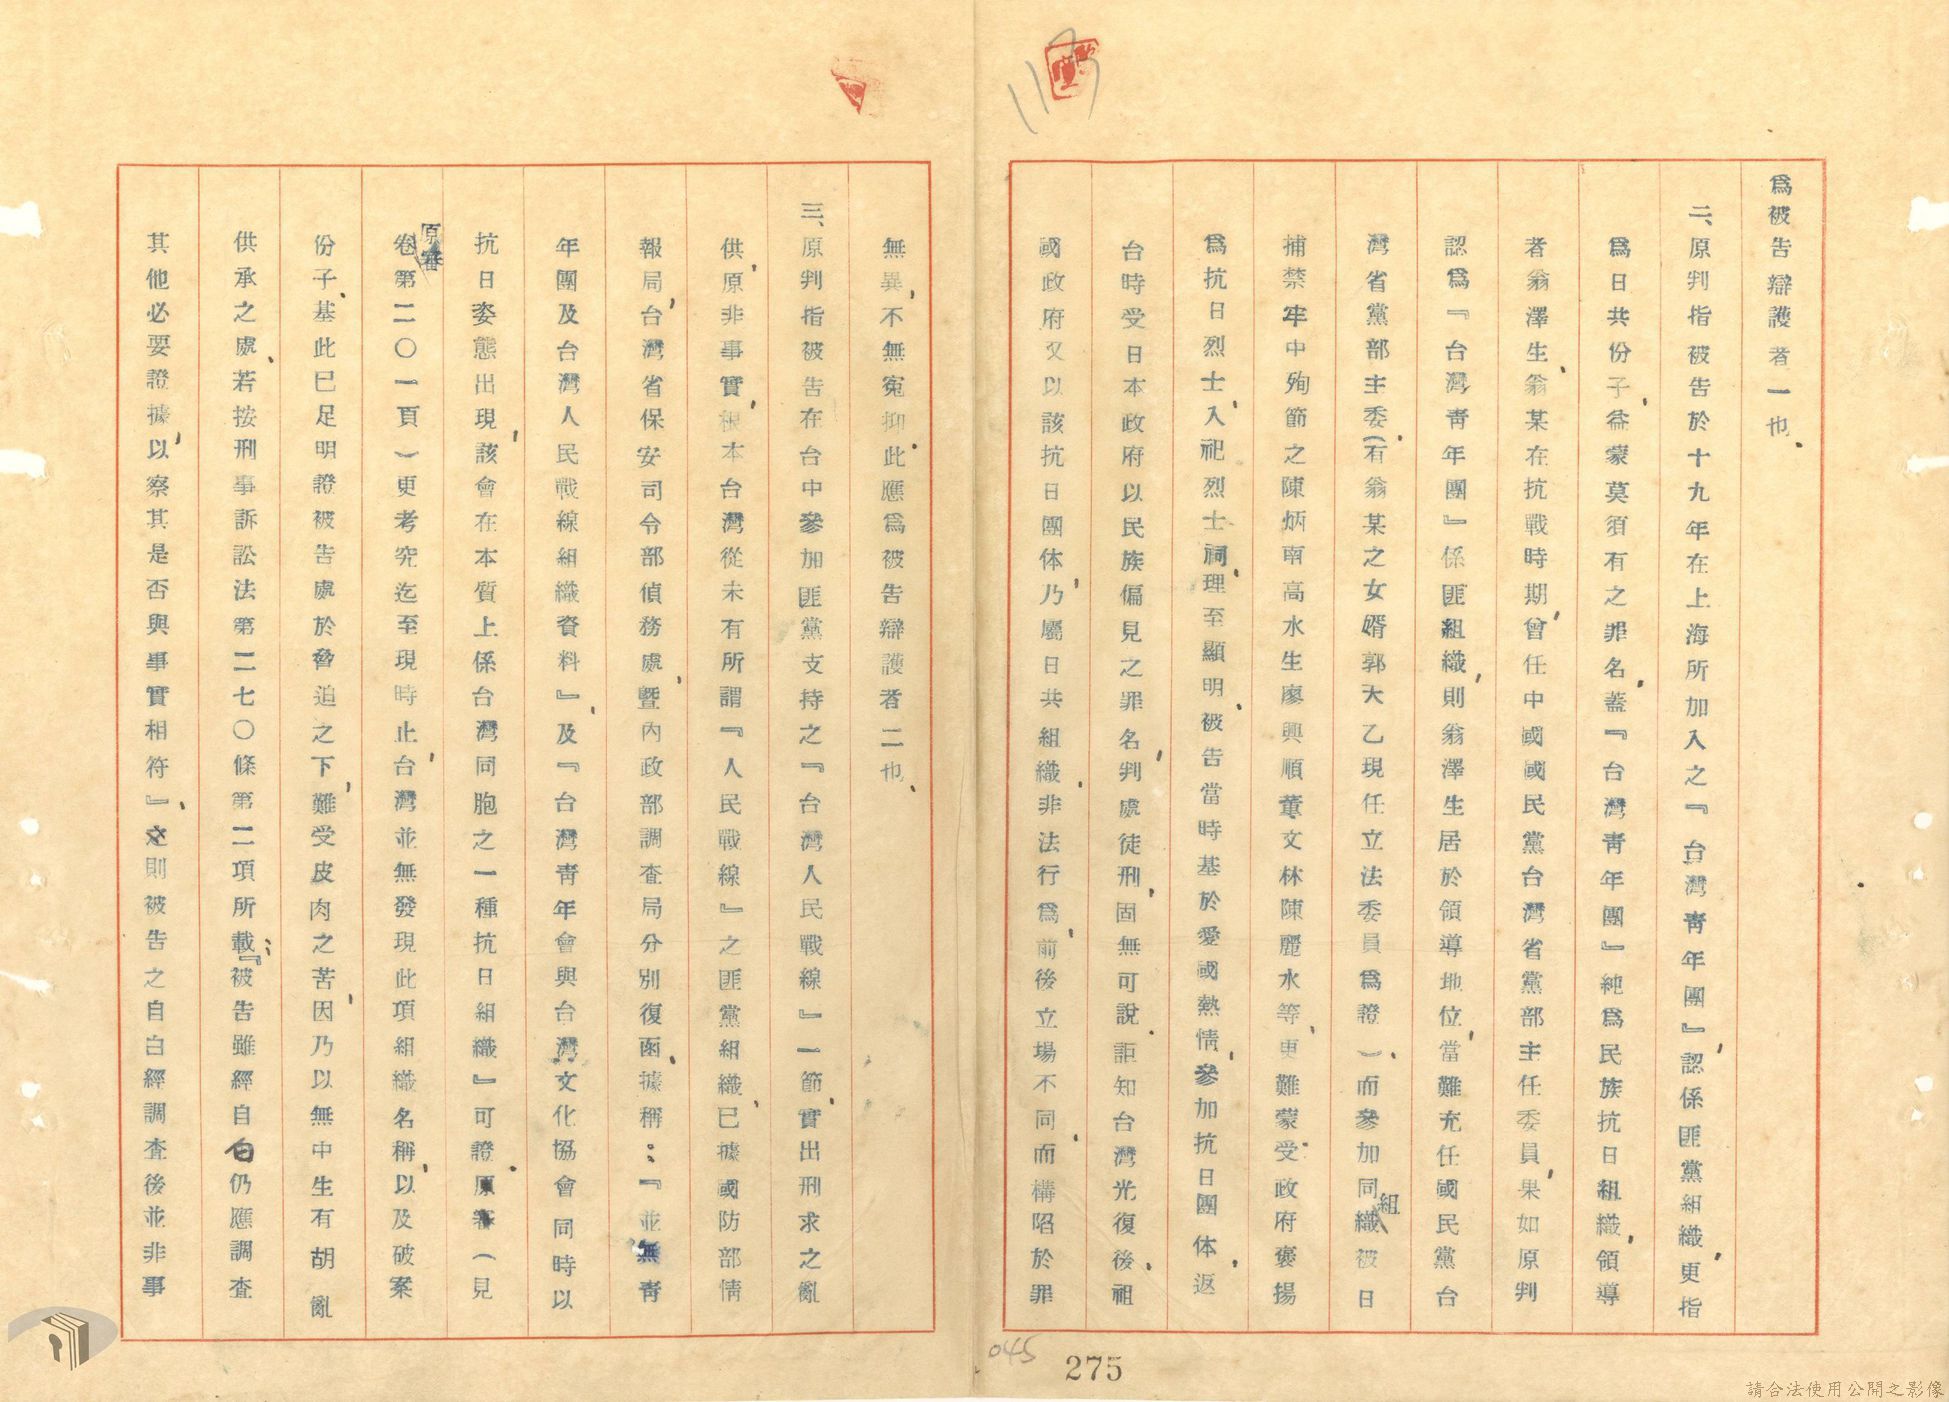 為被告辯護者一也、
二、原判指被告於十九年在上海所加入之『台灣靑年團』認係匪黨組織、更指
為日共份子、益蒙莫須有之罪名、蓋『台灣靑年團』純為民族抗日組織、領導
者翁澤生、翁某在抗戰時期、曾任中國國民黨台灣省黨部主任委員、果如原判
認為『台灣靑年團』係匪組織、則翁澤生居於領導地位、當難充任國民黨台
灣省黨部主委、(有翁某之女婿郭天乙現任立法委員為證)、而參加同組織被日
捕禁牢中殉節之陳炳南高水生廖興順董文林陳麗水等、更難蒙受政府褒揚
為抗日烈士、入祀烈士祠、理至顯明、被告當時基於愛國熱情、參加抗日團体、返
台時受日本政府以民族偏見之罪名、判處徒刑、固無可說、詎知台灣光復後、祖
國政府又以該抗日團体、乃屬日共組織、非法行為、前後立場不同、而構陷於罪
無異、不無寃抑、此應為被告辯護者二也、
三、原判指被告在台中參加匪黨支持之『台灣人民戰線』一節、實出刑求之亂
供、原非事實、根本台灣從未有所謂『人民戰線』之匪黨組織、已據國防部情
報局、台灣省保安司令部偵務處、暨內政部調查局分別復函、據稱:『並無靑
年團及台灣人民戰線組織資料』、及『台灣靑年會與台灣文化協會同時以
抗日姿態出現、該會在本質上係台灣同胞之一種抗日組織』可證、原審(見
原審卷第二〇一頁)更考究迄至現時止、台灣並無發現此項組織名稱、以及破案
份子、基此已足明證被告處於脅迫之下、難受皮肉之苦、因乃以無中生有胡亂
供承之處、若按刑事訴訟法第二七〇條第二項所載:『被告雖經自白仍應調查
其他必要證據、以察其是否與事實相符』、之則被告之自白經調查後並非事
275
045
113
請合法使用公開之影像